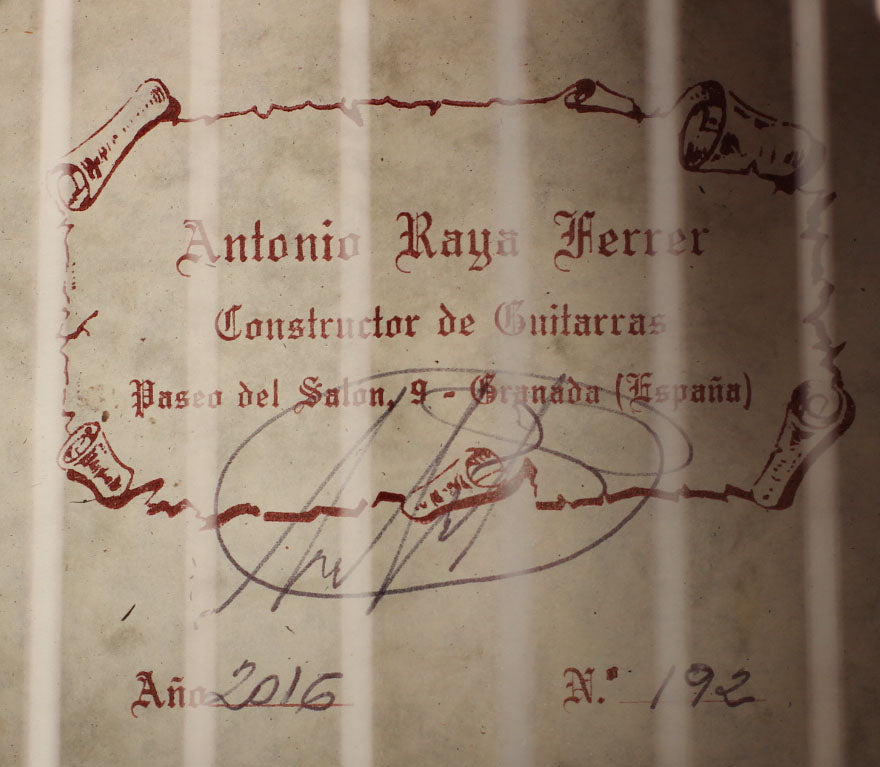 Antonio Raya Ferrer
Constructor de Guitarras
Paseo del Salon, 9 - Granada (España)
Año 2016 N.º 192